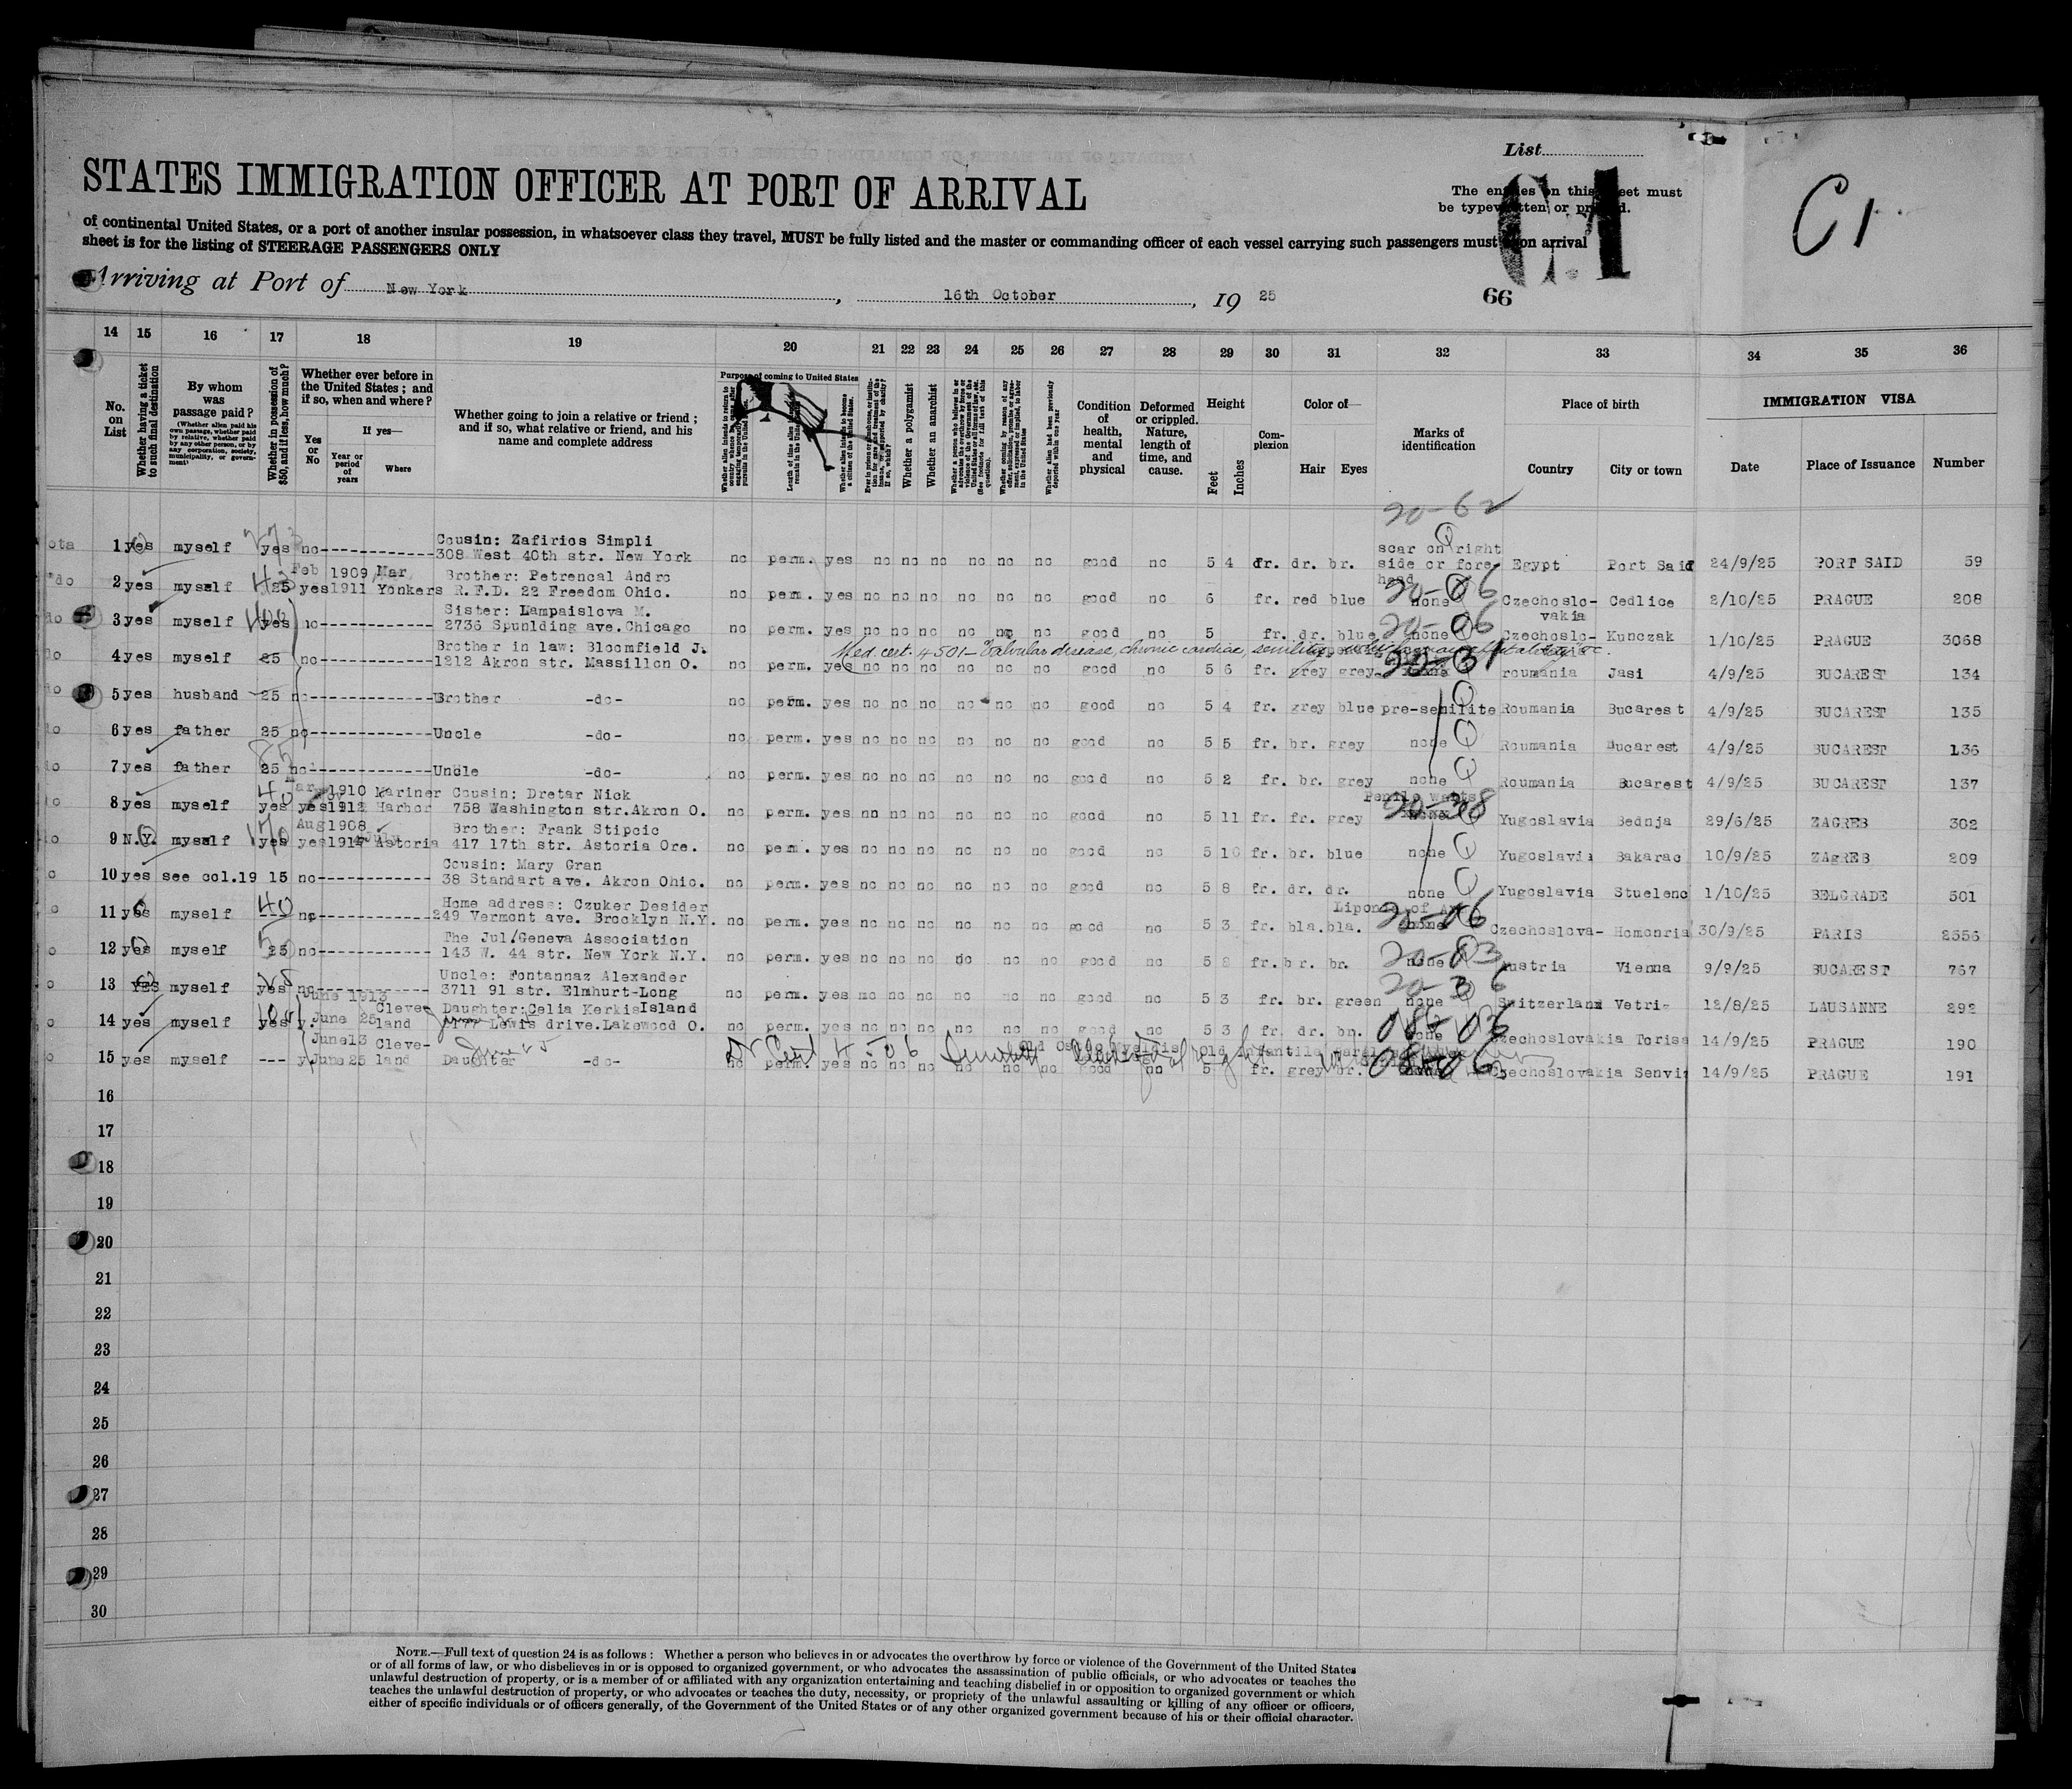 List
The entries on this sheet must
be typewritten or printed.
C1
C1
STATES IMMIGRATION OFFICER AT PORT OF ARRIVAL
of continental United States, or a port of another insular possession, in whatsoever class they travel, MUST be fully listed and the master or commanding officer of each vessel carrying such passengers must upon arrival
sheet is for the listing of STEERAGE PASSENGERS ONLY
Arriving at Port of New York, 16th October, 19 25
66
14 15 16 17 18 19 20 21 22 23 24 25 26 27 28 29 30 31 32 33 34 35 36
No. on List
Whether having a ticket to such final destination
By whom was passage paid?
(Whether alien paid his own passage, whether paid by relative, whether paid by any other person, or by any corporation, society, municipality, or government)
Whether in possession of $50, and if less, how much?
Whether ever before in the United States; and if so, when and where?
Yes or No
If yes—
Year or period of years
Where
Whether going to join a relative or friend; and if so, what relative or friend, and his name and complete address
Purpose of coming to United States
Whether a polygamist
Whether an anarchist
Condition of health, mental and physical
Deformed or crippled. Nature, length of time, and cause.
Height
Feet
Inches
Complexion
Color of—
Hair
Eyes
Marks of identification
Place of birth
Country
City or town
IMMIGRATION VISA
Date
Place of Issuance
Number
20-62
Cousin: Zafirios Simpli
1 yes myself yes no 308 West 40th str. New York no perm. yes no no no no no no good no 5 4 dr. dr. br. scar on right side or fore head Egypt Port Said 24/9/25 PORT SAID 59
Feb 1909 Mar Brother: Petrencal Andro
2 yes myself 25 yes 1911 Yonkers R.F.D. 22 Freedom Ohio. no perm. yes no no no no no no good no 6 fr. red blue none Czechoslovakia Cedlice 2/10/25 PRAGUE 208
20-06
Sister: Lampaislova M.
3 yes myself yes no 2736 Spunlding ave. Chicago no perm. yes no no no no no no good no 5 fr. dr. blue none Czechoslo- Kunczak 1/10/25 PRAGUE 3068
20-06
Med. cert. 4501 - Valvular disease, chronic cardiac, senility,
Brother in law: Bloomfield J.
4 yes myself 25 no 1212 Akron str. Massillon O. no perm. yes no no no no no no good no 5 6 fr. grey grey roumania Jasi 4/9/25 BUCAREST 134
5 yes husband 25 no Brother -do- no perm. yes no no no no no no good no 5 4 fr. grey blue pre-senilite Roumania Bucarest 4/9/25 BUCAREST 135
6 yes father 25 no Uncle -do- no perm. yes no no no no no no good no 5 5 fr. br. grey none Roumania Bucarest 4/9/25 BUCAREST 136
7 yes father 25 no Uncle -do- no perm. yes no no no no no no good no 5 2 fr. br. grey none Roumania Bucarest 4/9/25 BUCAREST 137
1910 Mariner Cousin: Dretar Nick
8 yes myself yes yes 1912 Harbor 758 Washington str. Akron O. no perm. yes no no no no no good no 5 11 fr. fr. grey Yugoslavia Bednja 29/6/25 ZAGREB 302
Aug 1908 July Brother: Frank Stipcic
9 N.Y. myself yes yes Astoria 417 17th str. Astoria Ore. no perm. yes no no no no no no good no 5 10 fr. br. blue none Yugoslavia Bakarac 10/9/25 ZAgREB 209
Cousin: Mary Gran
10 yes see col.19 15 no 38 Standart ave. Akron Ohio. no perm. yes no no no no no no good no 5 8 fr. dr. dr. none Yugoslavia Stuelenc 1/10/25 BELGRADE 501
Home address: Czuker Desider
11 yes myself --- no 249 Vermont ave. Brooklyn N.Y. no perm. yes no no no no no no good no 5 3 fr. bla. bla. none Czechoslova- Homonria 30/9/25 PARIS 2556
20-06
The Jul.Geneva Association
12 yes myself 25 no 143 W. 44 str. New York N.Y. no perm. yes no no no no no no good no 5 8 fr. br. br. none Austria Vienna 9/9/25 BUCAREST 767
20-03
Uncle: Fontannaz Alexander
13 YES myself yes no 3711 91 str. Elmhurt-Long Island no perm. yes no no no no no no good no 5 3 fr. br. green none Switzerland Vetri- 12/8/25 LAUSANNE 292
20-36
June 1913 Cleve- Daughter: Celia Kerkis
14 yes myself yes y. June 25 land Lewis drive. Lakewood O. no perm. yes no no no no no no good no 5 3 fr. dr. bn. none Czechoslovakia Torisa 14/9/25 PRAGUE 190
June13 Cleve-
15 yes myself --- y. June 25 land Daughter -do- no perm. yes no no no no no no good no 5 fr. grey br. Czechoslovakia Senvi 14/9/25 PRAGUE 191
08-06
16
17
18
19
20
21
22
23
24
25
26
27
28
29
30
NOTE.—Full text of question 24 is as follows: Whether a person who believes in or advocates the overthrow by force or violence of the Government of the United States
or of all forms of law, or who disbelieves in or is opposed to organized government, or who advocates the assassination of public officials, or who advocates or teaches the
unlawful destruction of property, or is a member of or affiliated with any organization entertaining and teaching disbelief in or opposition to organized government or which
teaches the unlawful destruction of property, or who advocates or teaches the duty, necessity, or propriety of the unlawful assaulting or killing of any officer or officers,
either of specific individuals or of officers generally, of the Government of the United States or of any other organized government because of his or their official character.